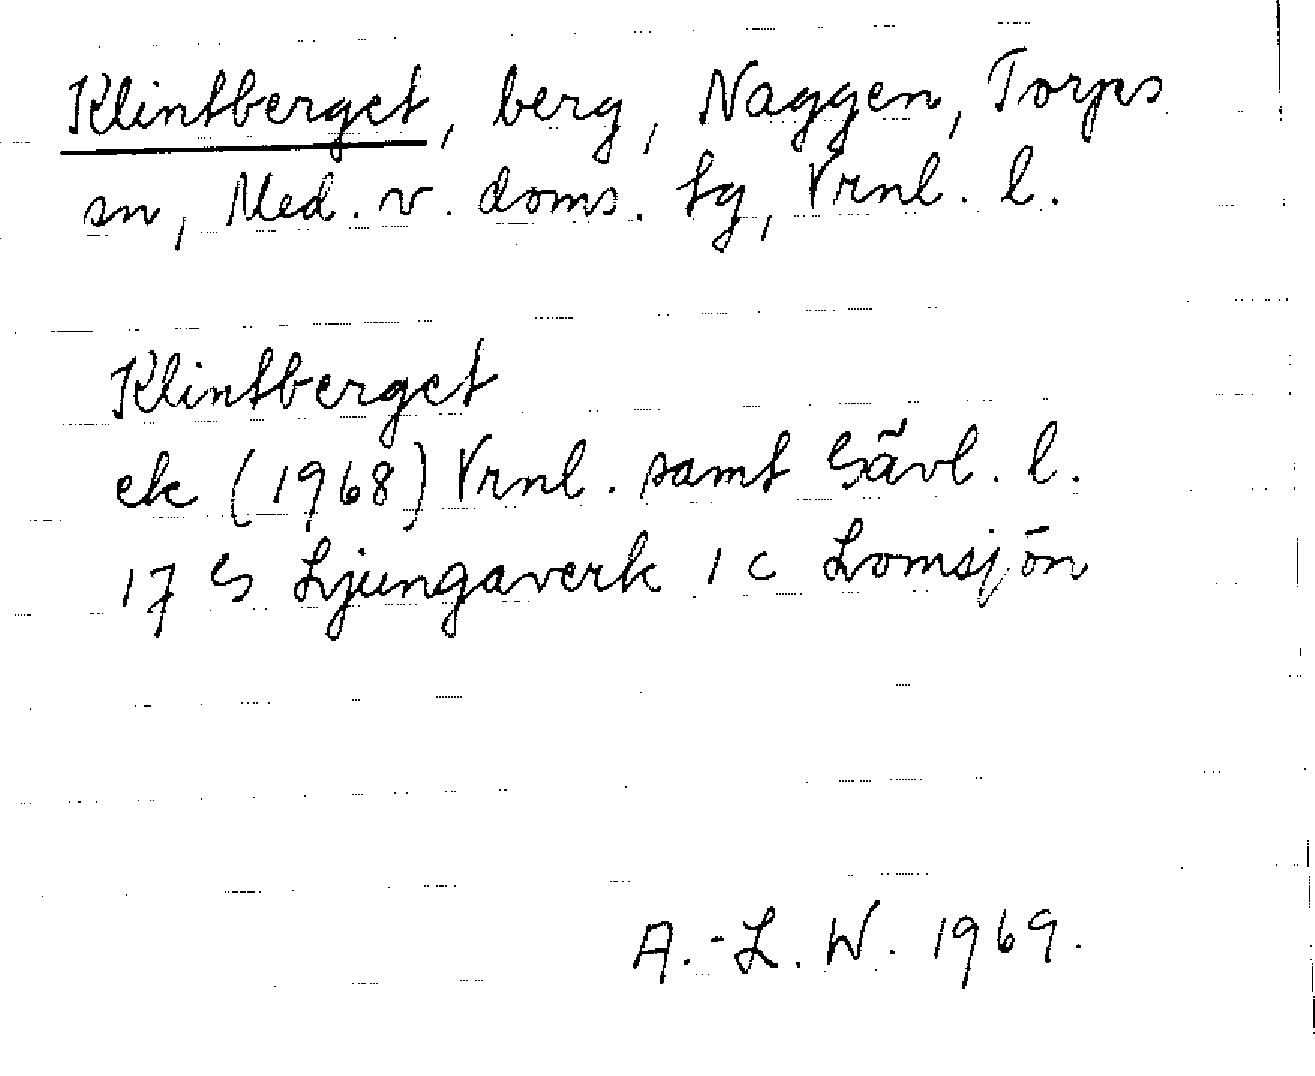 Klintberget, berg, Naggen, Torps
sn, Med. v. doms. tg, Vrnl. l.
Klintberget
ek (1968) Vrnl. samt Gävl. l.
17 G Ljungaverk 1 c Lomsjön
A.-L. W. 1969.